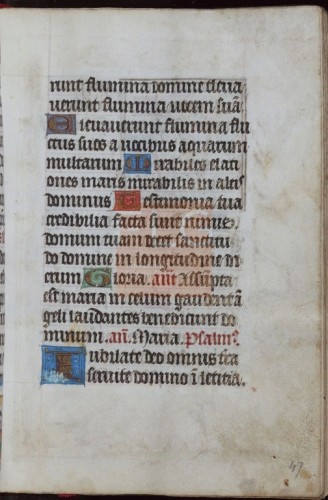 runt flumina domine eleua
uerunt flumina uocem suā
Eleuauerunt flumina flu
ctus suos a uocibus aquarum
multarum Mirabiles elati
ones maris mirabilis in altis
dominus Testimonia tua
credibilia facta sunt nimis.
domum tuam decet sanctitu
do domine in longitudine di
erum Gloria. añ Assūpta
est maria in celum gaudent ā
geli laudantes benedicunt do
minum. añ. Maria. Psalmꝰ.
Iubilate deo omnis t̄ra
seruite domino ī letitia.
47